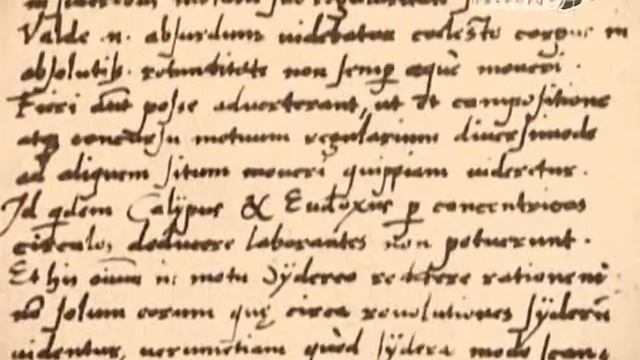 Valde .n. absurdum videbatur coeleste corpus in
absolutiss. rotunditate non semp æquè moveri .
Fieri aūt posse adverterant, ut et compositione
atq concursu motuum regularium diversimode
ad aliquem situm moveri quippiam videretur.
Id qdem Calippus & Eudoxus p concentricos
circulos deducere laborantes non potuerunt .
Et his oīum n: motu sydereo reddere rationem
nō solum eorum quę circa revolutiones syderū
videntur, verumetiam quòd sydera modo